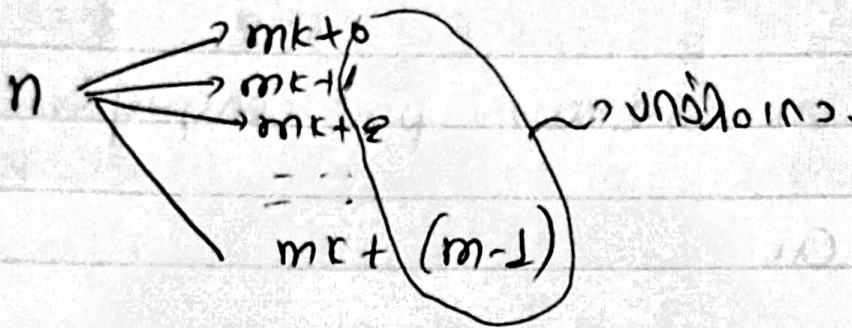 mk+0
n mk+1
mk+2
mk+ (m-1)